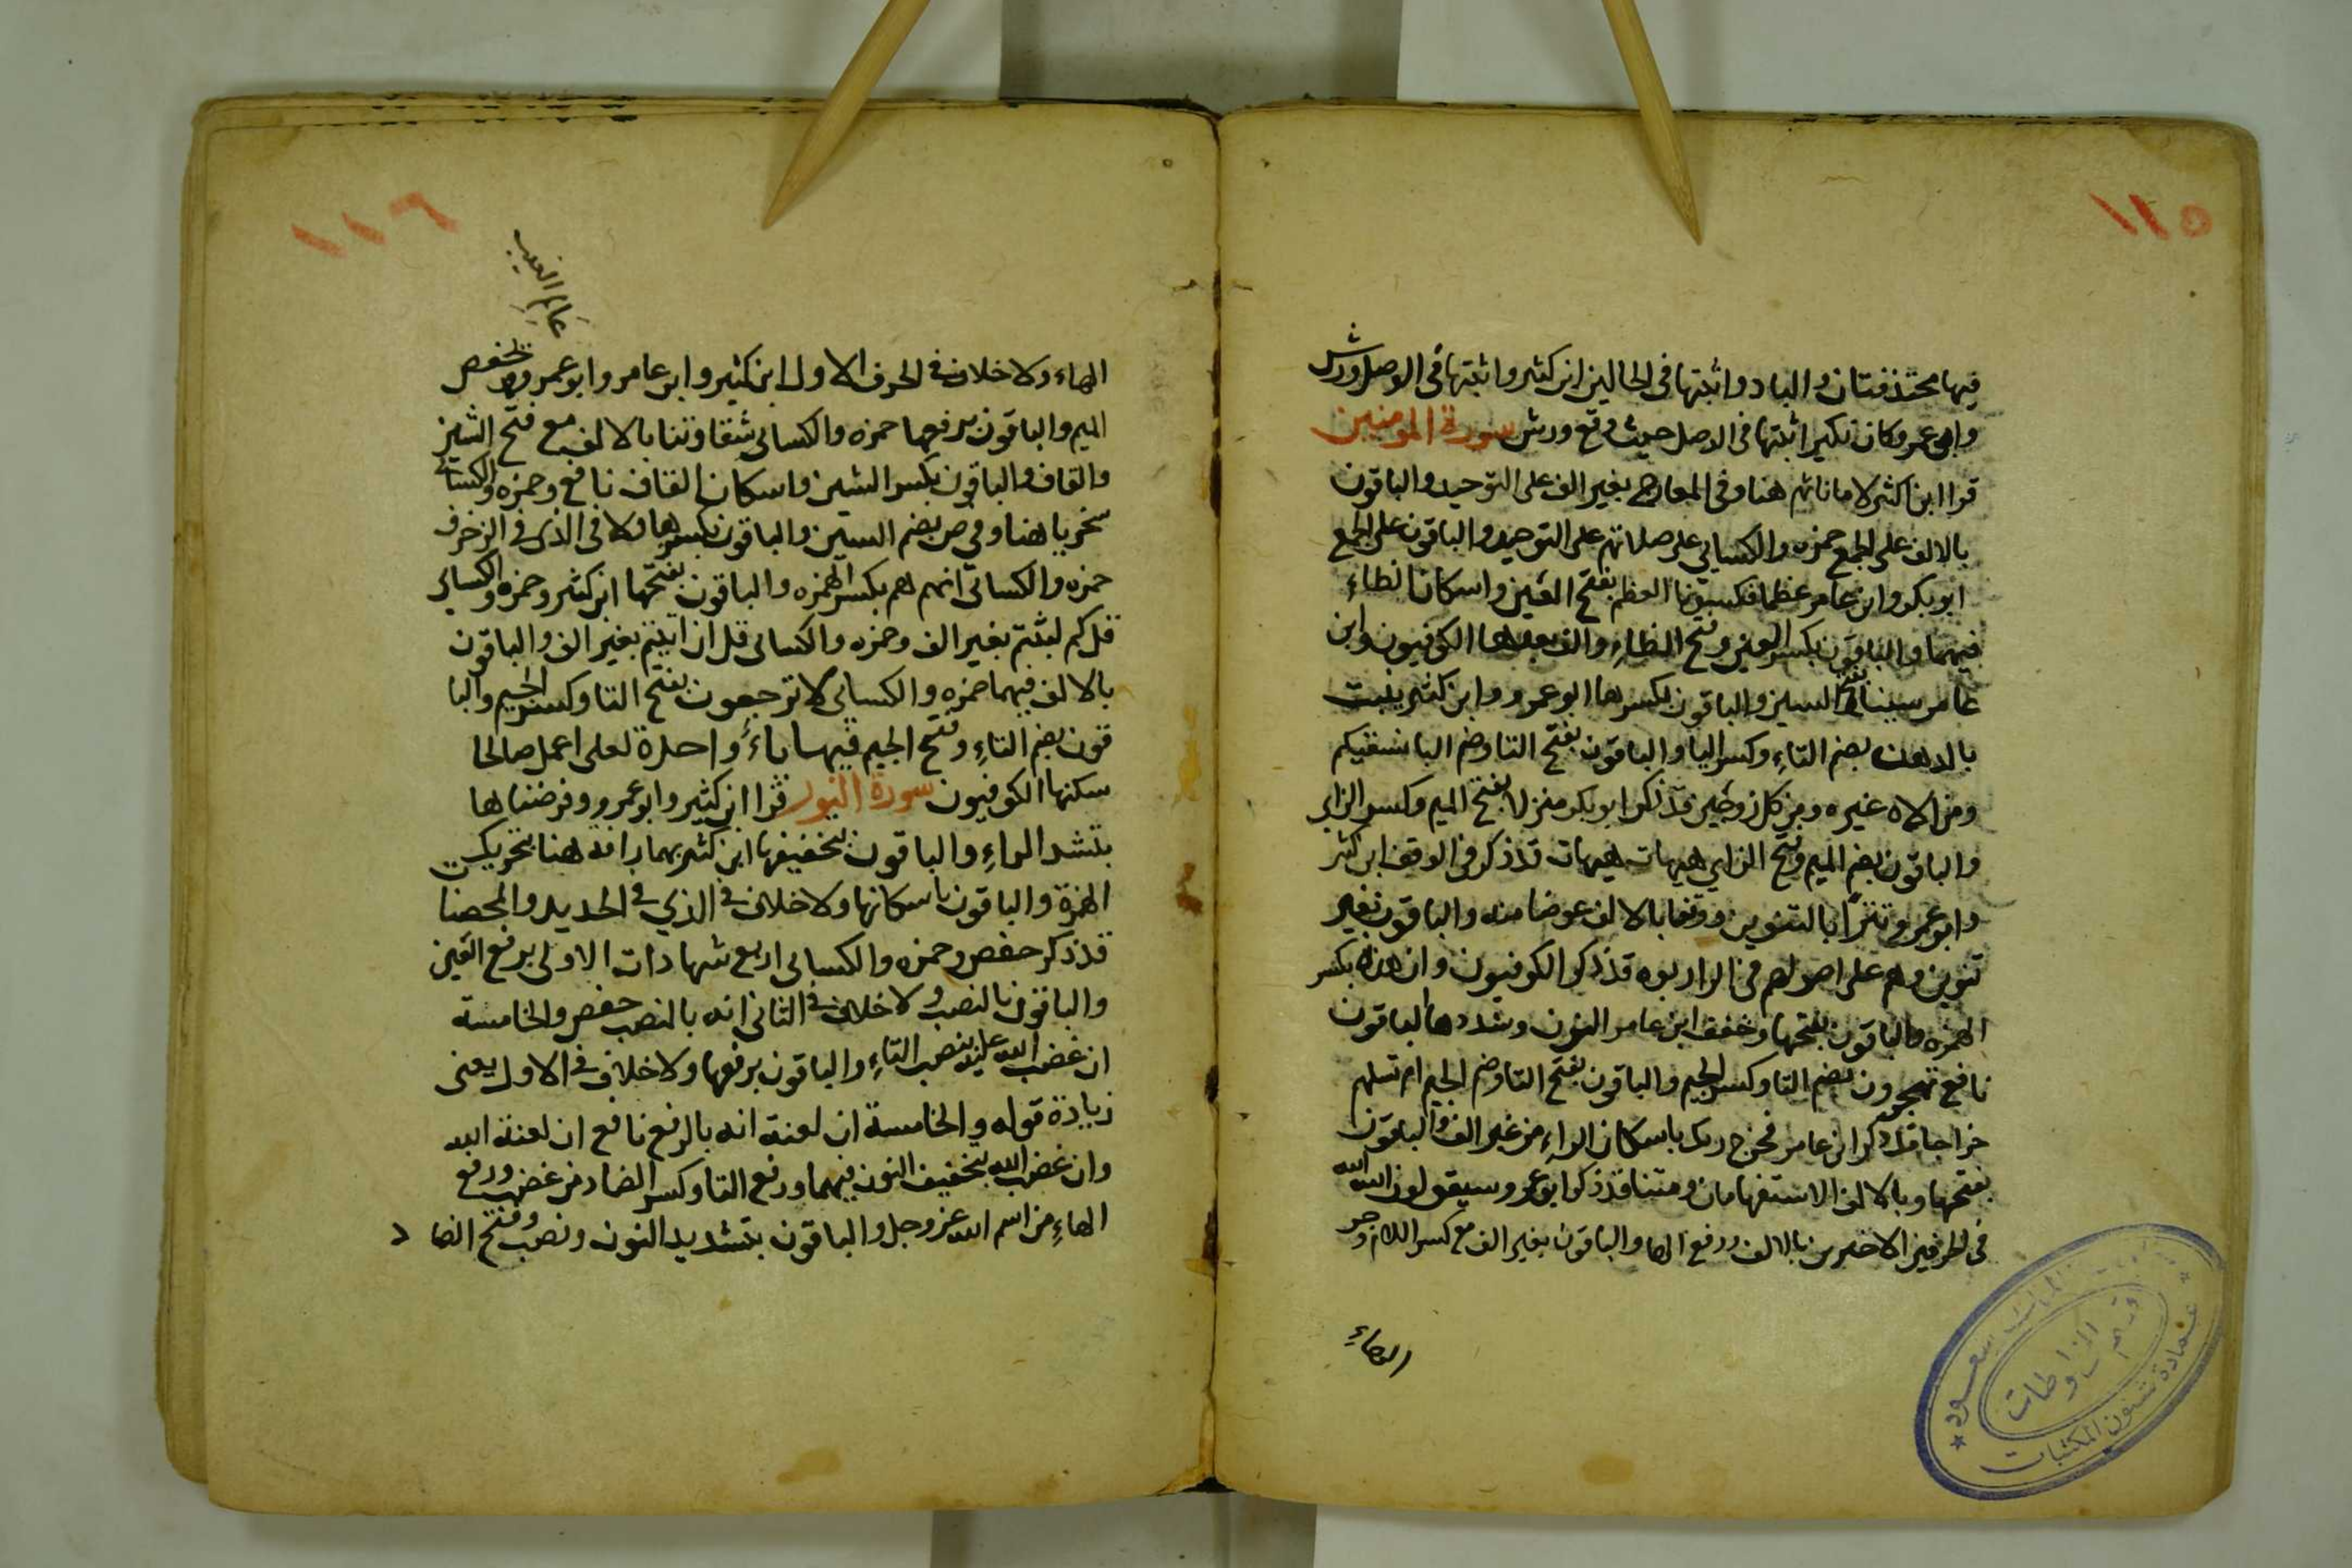 ١١٥
فيها محذوفتان والباد واثبتها في الحالين ابن كثير واثبتها في الوصل ورش
وابو عمرو وكان نكير اثبتها في الوصل حيث وقع ورش سورة المومنين
قرا ابن كثير لاماناتهم هنا وفي المعارج بغير الف على التوحيد والباقون
بالالف على الجمع حمزه والكسائي على صلاتهم على التوحيد والباقون على الجمع
ابو بكر وابن عامر عظما فكسونا العظم بفتح العين واسكان الظاء
فيهما والباقون بكسر العين وفتح الظاء والف بعدها الكوفيون وابن
عامر سيناء بفتح السين والباقون بكسرها ابو عمرو وابن كثير تنبت
بالدهن بضم التاء وكسر البا والباقون بفتح التا وضم البا نسقيكم
ومن اله غيره ومن كل زوجين قد ذكر ابو بكر منزلا بفتح الميم وكسر الزاي
والباقون بضم الميم وفتح الزاي هيهات هيهات قد ذكر في الوقف ابن كثير
وابو عمرو تترًا بالتنوين ووقفا بالالف عوضا منه والباقون بغير
تنوين وهم على اصولهم في الرا ربوه قد ذكر الكوفيون وان هذه بكسر
الهمزه والباقون بفتحها وخفف ابن عامر النون وشددها الباقون
نافع تهجرون بضم التا وكسر الجيم والباقون بفتح التا وضم الجيم ام تسلهم
خراجا قد ذكر ابن عامر فخرج ربك باسكان الراء من غير الف والباقون
بفتحها وبالالف الاستفهامان ومتنا قد ذكر ابو عمرو سيقولون الله الله
في الحرفين الاخيرين بالالف ورفع الها والباقون بغير الف مع كسر اللام وجر
الهاء
١١٦
عالم الغيب
الهاء ولا خلاف في الحرف الاول ابن كثير وابن عامر وابو عمرو وحفص بخفض
الميم والباقون برفعها حمزه والكسائي شقاوتنا بالالف مع فتح الشين
والقاف والباقون بكسر الشين واسكان القاف نافع وحمزه والكسائي
سخريا هنا وفي ص بضم السين والباقون بكسرها ولا في الذي في الزخرف
حمزه والكسائي انهم هم بكسر الهمزه والباقون بفتحها ابن كثير وحمزه والكسائي
قل كم لبثتم بغير الف وحمزه والكسائي قل ان لبثتم بغير الف والباقون
بالالف فيهما حمزه والكسائي لا ترجعون بفتح التا وكسر الجيم والبا
قون بضم التاء وفتح الجيم فيها ياءٌ واحدة لعلي اعمل صالحا
سكنها الكوفيون سورة النور قرا ابن كثير وابو عمرو وفرضناها
بتشد الراء والباقون بتخفيفها ابن كثير بهما رافة هنا بتحريك
الهمزة والباقون باسكانها ولا خلاف في الذي في الحديد والمحصنا
قد ذكر حفص وحمزه والكسائي اربع شهادات الاولى برفع العين
والباقون بالنصب ولا خلاف في الثاني انه بالنصب حفص والخامسة
ان غضب الله عليها بنصب التاء والباقون برفعها ولا خلاف في الاول يعني
زيادة قوله والخامسة ان لعنة انه بالرفع نافع ان لعنة الله
وان غضب الله بتخفيف النون فيهما ورفع التا وكسر الضاد من غضب ورفع
الهاء من اسم الله عز وجل والباقون بتشديد النون ونصب وفتح الضا د
سعود
قسم المخطوطات
عمادة شئون المكتبات